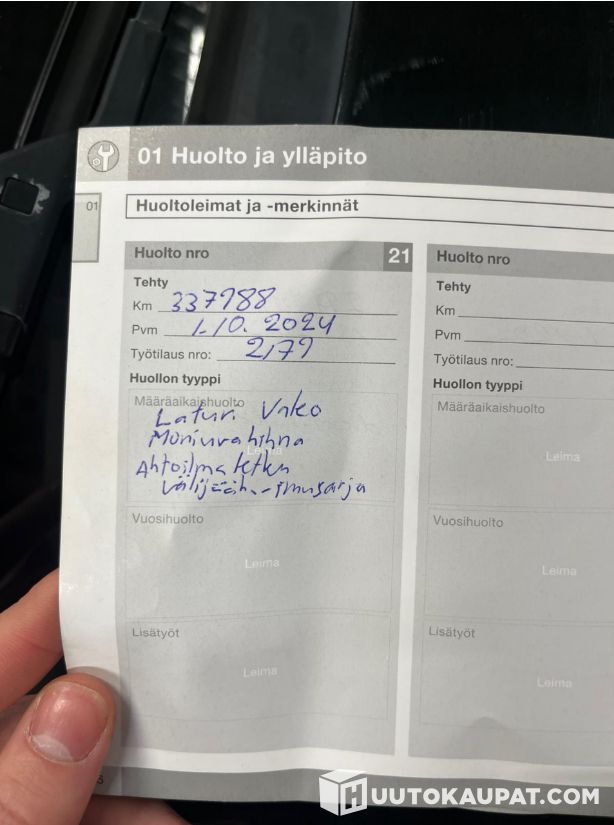 01 Huolto ja ylläpito
01
Huoltoleimat ja -merkinnät
Huolto nro 21
Tehty
Km 337988
Pvm 1.10. 2024
Työtilaus nro: 2179
Huollon tyyppi
Määräaikaishuolto
Laturi Vako
Moniurahihna
Leima
Ahtoilma letku
välijääh. - imusarja
Vuosihuolto
Leima
Lisätyöt
Leima
Huolto nro
Tehty
Km
Pvm
Työtilaus nro:
Huollon tyyppi
Määräaikaishuolto
Leima
Vuosihuolto
Leima
Lisätyöt
Leima
HUUTOKAUPAT.COM